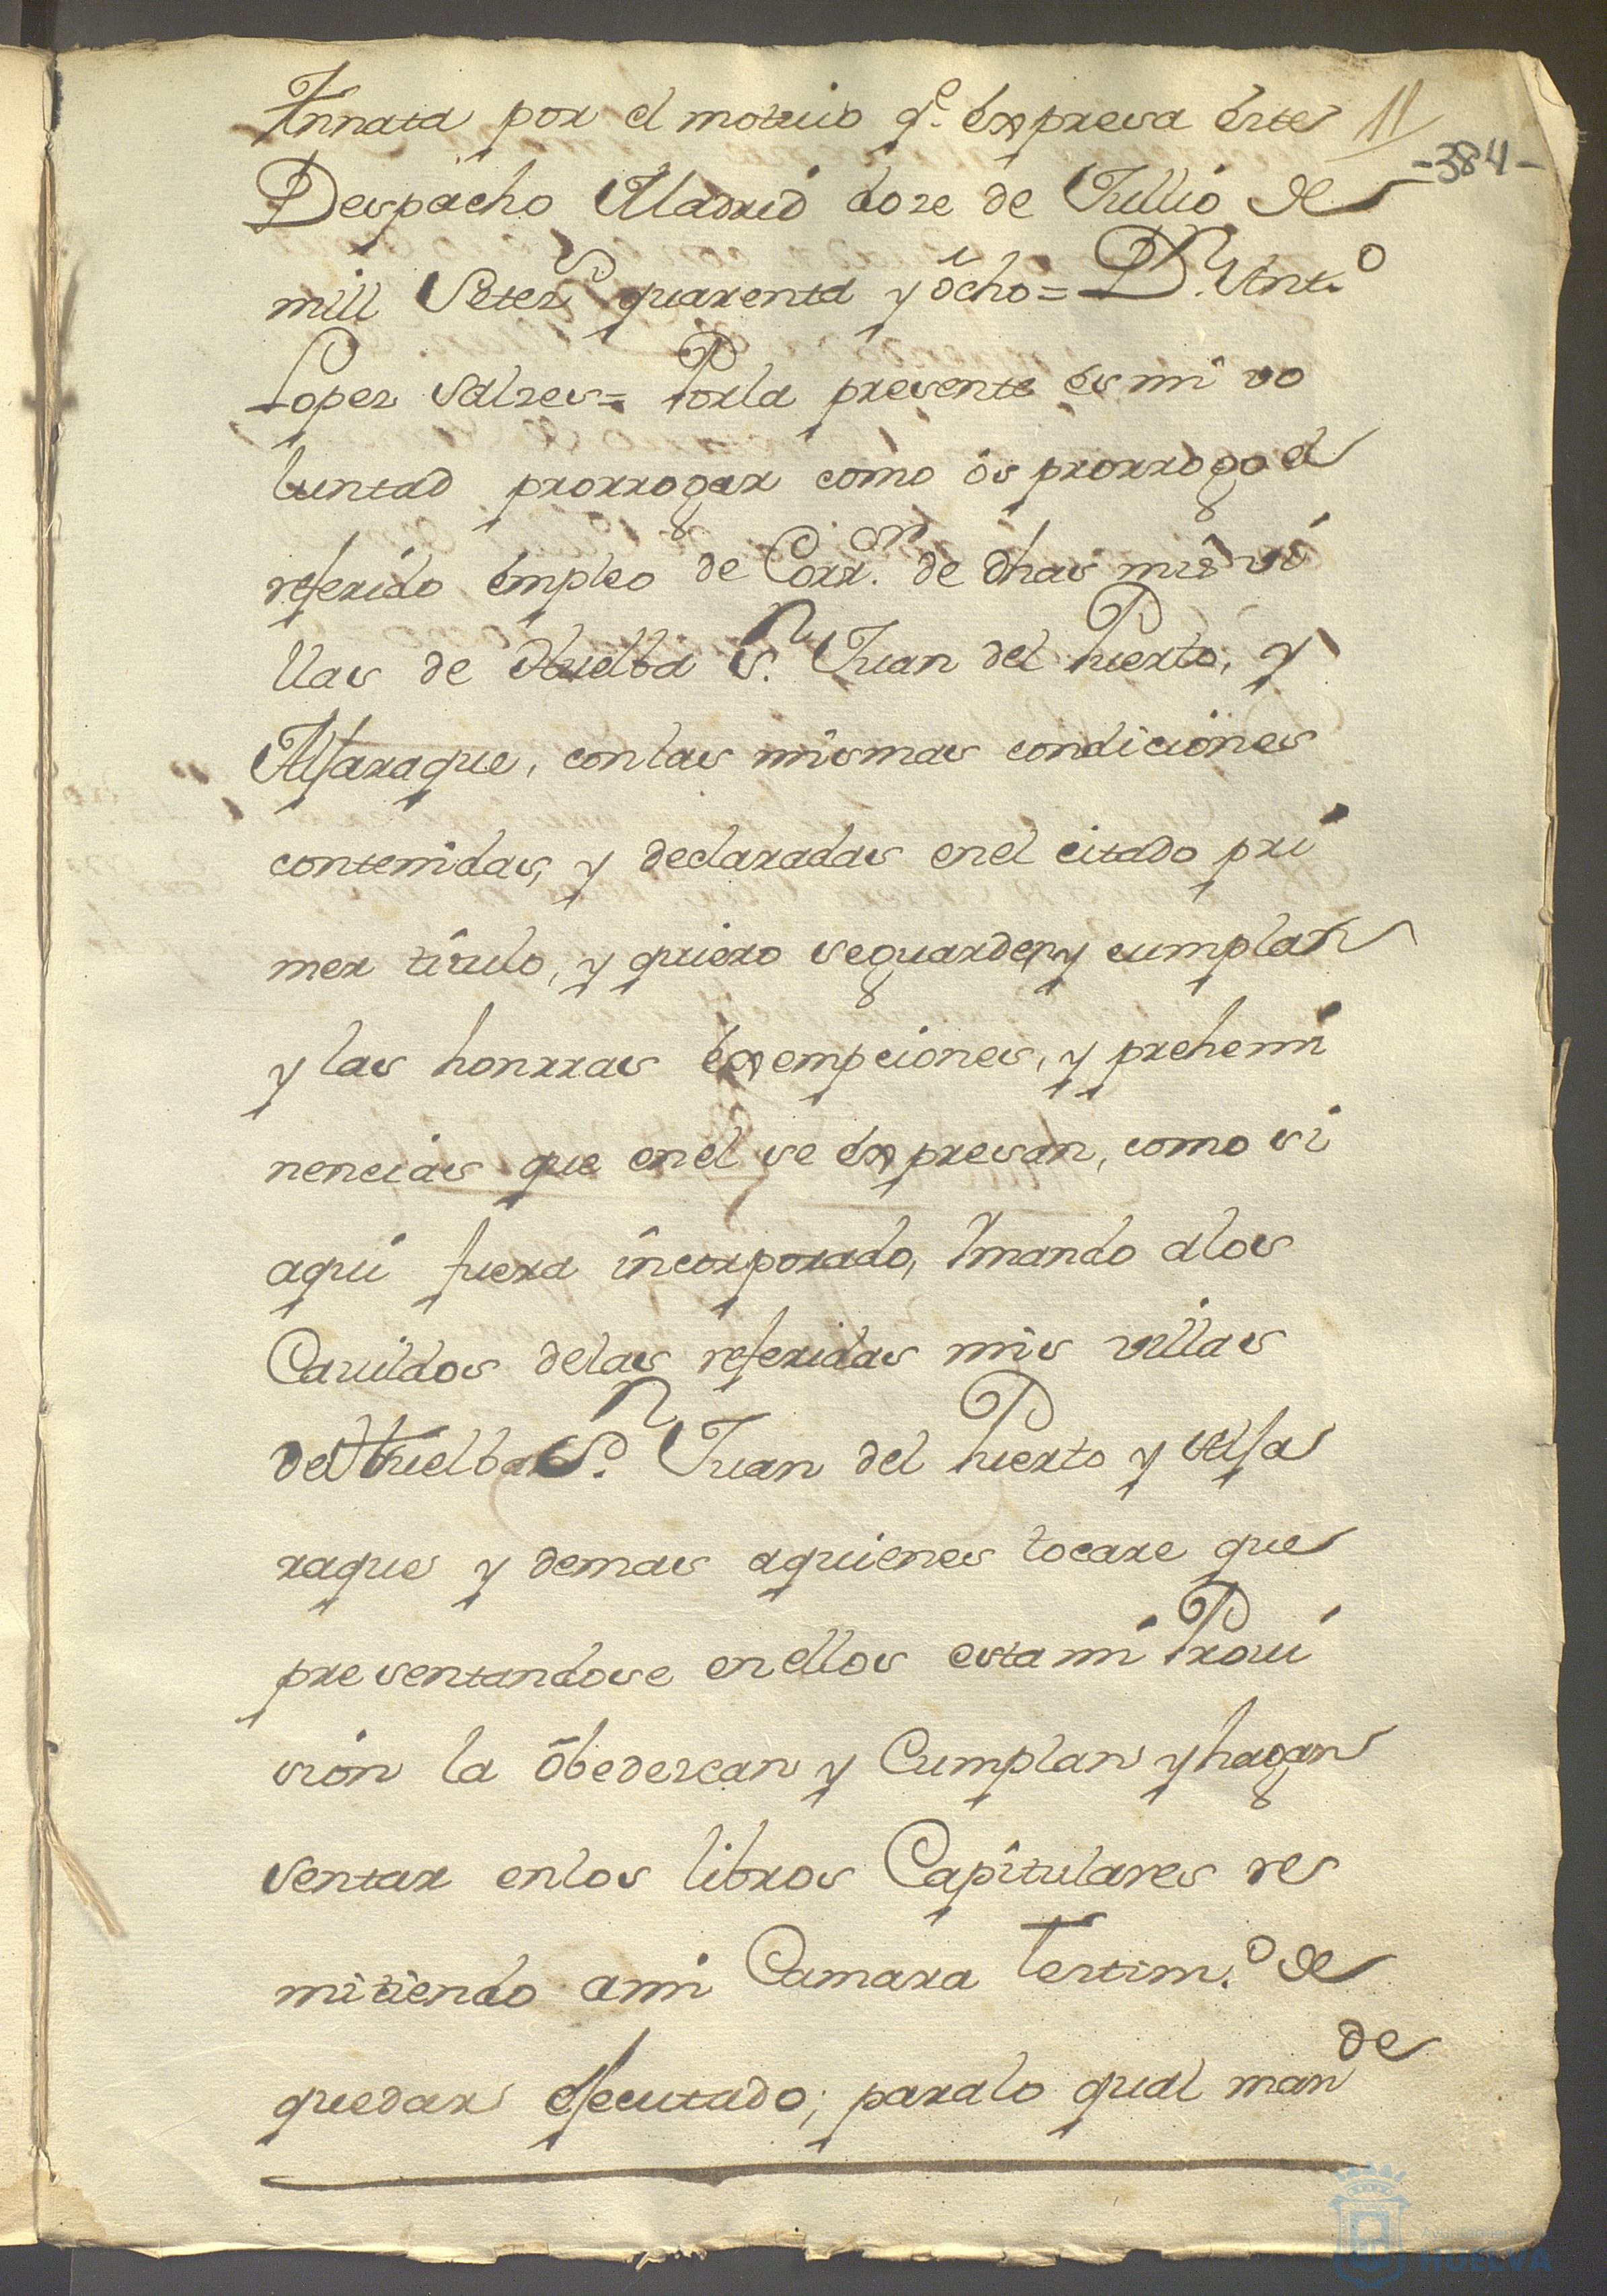 Annata por el motivo q.e expresa este 11
-384-
Despacho Madrid doze de Jullio de
mill Setez.s quarenta y ôcho = D.n Ant.o
Lopez Salzes = Por la presente es mi vo
luntad prorrogar como ôs prorrogo el
referido empleo de Corr.or de dhas mis vi
llas de Huelba S.n Juan del Puerto, y
Aljaraque, con las mismas condiciones
contenidas, y declaradas en el citado pri
mer titulo, y quiero se guarden y cumplan
y las honrras exempciones, y prehemi
nencias que en el se expresan, como si
aqui fuera incorporado, Ymando a los
Cavildos de las referidas mis villas
de Huelba S.n Juan del Puerto y Alja
raque y demas a quienes tocare que
presentandose en ellos esta mi Provi
sion la ôbedezcan y Cumplan y hagan
sentar en los libros Capitulares re
mitiendo a mi Camara Testim.o de
quedar ejecutado; para lo qual man
de
Ayuntamiento
HUELVA